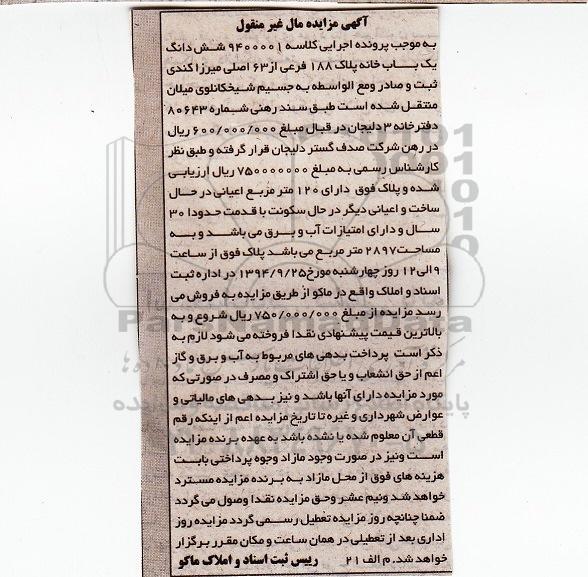 آگهی مزایده مال غیر منقول
به موجب پرونده اجرایی کلاسه ۹۴۰۰۰۰۱ شش دانگ
یک باب خانه پلاک ۱۸۸ فرعی از ۶۳ اصلی میرزا کندی
ثبت و صادر ومع الواسطه به جسیم شیخکانلوی میلان
منتقل شده است طبق سند رهنی شماره ۸۰۶۴۳
دفترخانه ۳ دلیجان در قبال مبلغ ۶۰۰/۰۰۰/۰۰۰ ریال
در رهن شرکت صدف گستر دلیجان قرار گرفته و طبق نظر
کارشناس رسمی به مبلغ ۷۵۰۰۰۰۰۰۰ ریال ارزیابی
شده و پلاک فوق دارای ۱۲۰ متر مربع اعیانی در حال
ساخت و اعیانی دیگر در حال سکونت با قدمت حدودا ۳۰
سال و دارای امتیازات آب و برق می باشد و به
مساحت ۲۸۹۷ متر مربع می باشد پلاک فوق از ساعت
۹ الی ۱۲ روز چهارشنبه مورخ ۱۳۹۴/۹/۲۵ در اداره ثبت
اسناد و املاک واقع در ماکو از طریق مزایده به فروش می
رسد مزایده از مبلغ ۷۵۰/۰۰۰/۰۰۰ ریال شروع و به
بالاترین قیمت پیشنهادی نقدا فروخته می شود لازم به
ذکر است پرداخت بدهی های مربوط به آب و برق و گاز
اعم از حق انشعاب و یا حق اشتراک و مصرف در صورتی که
مورد مزایده دارای آنها باشد و نیز بدهی های مالیاتی و
عوارض شهرداری و غیره تا تاریخ مزایده اعم از اینکه رقم
قطعی آن معلوم شده یا نشده باشد به عهده برنده مزایده
است ونیز در صورت وجود مازاد وجوه پرداختی بابت
هزینه های فوق از محل مازاد به برنده مزایده مسترد
خواهد شد ونیم عشر وحق مزایده نقدا وصول می گردد
ضمنا چنانچه روز مزایده تعطیل رسمی گردد مزایده روز
اداری بعد از تعطیلی در همان ساعت و مکان مقرر برگزار
خواهد شد. م الف ۲۱ رییس ثبت اسناد و املاک ماکو